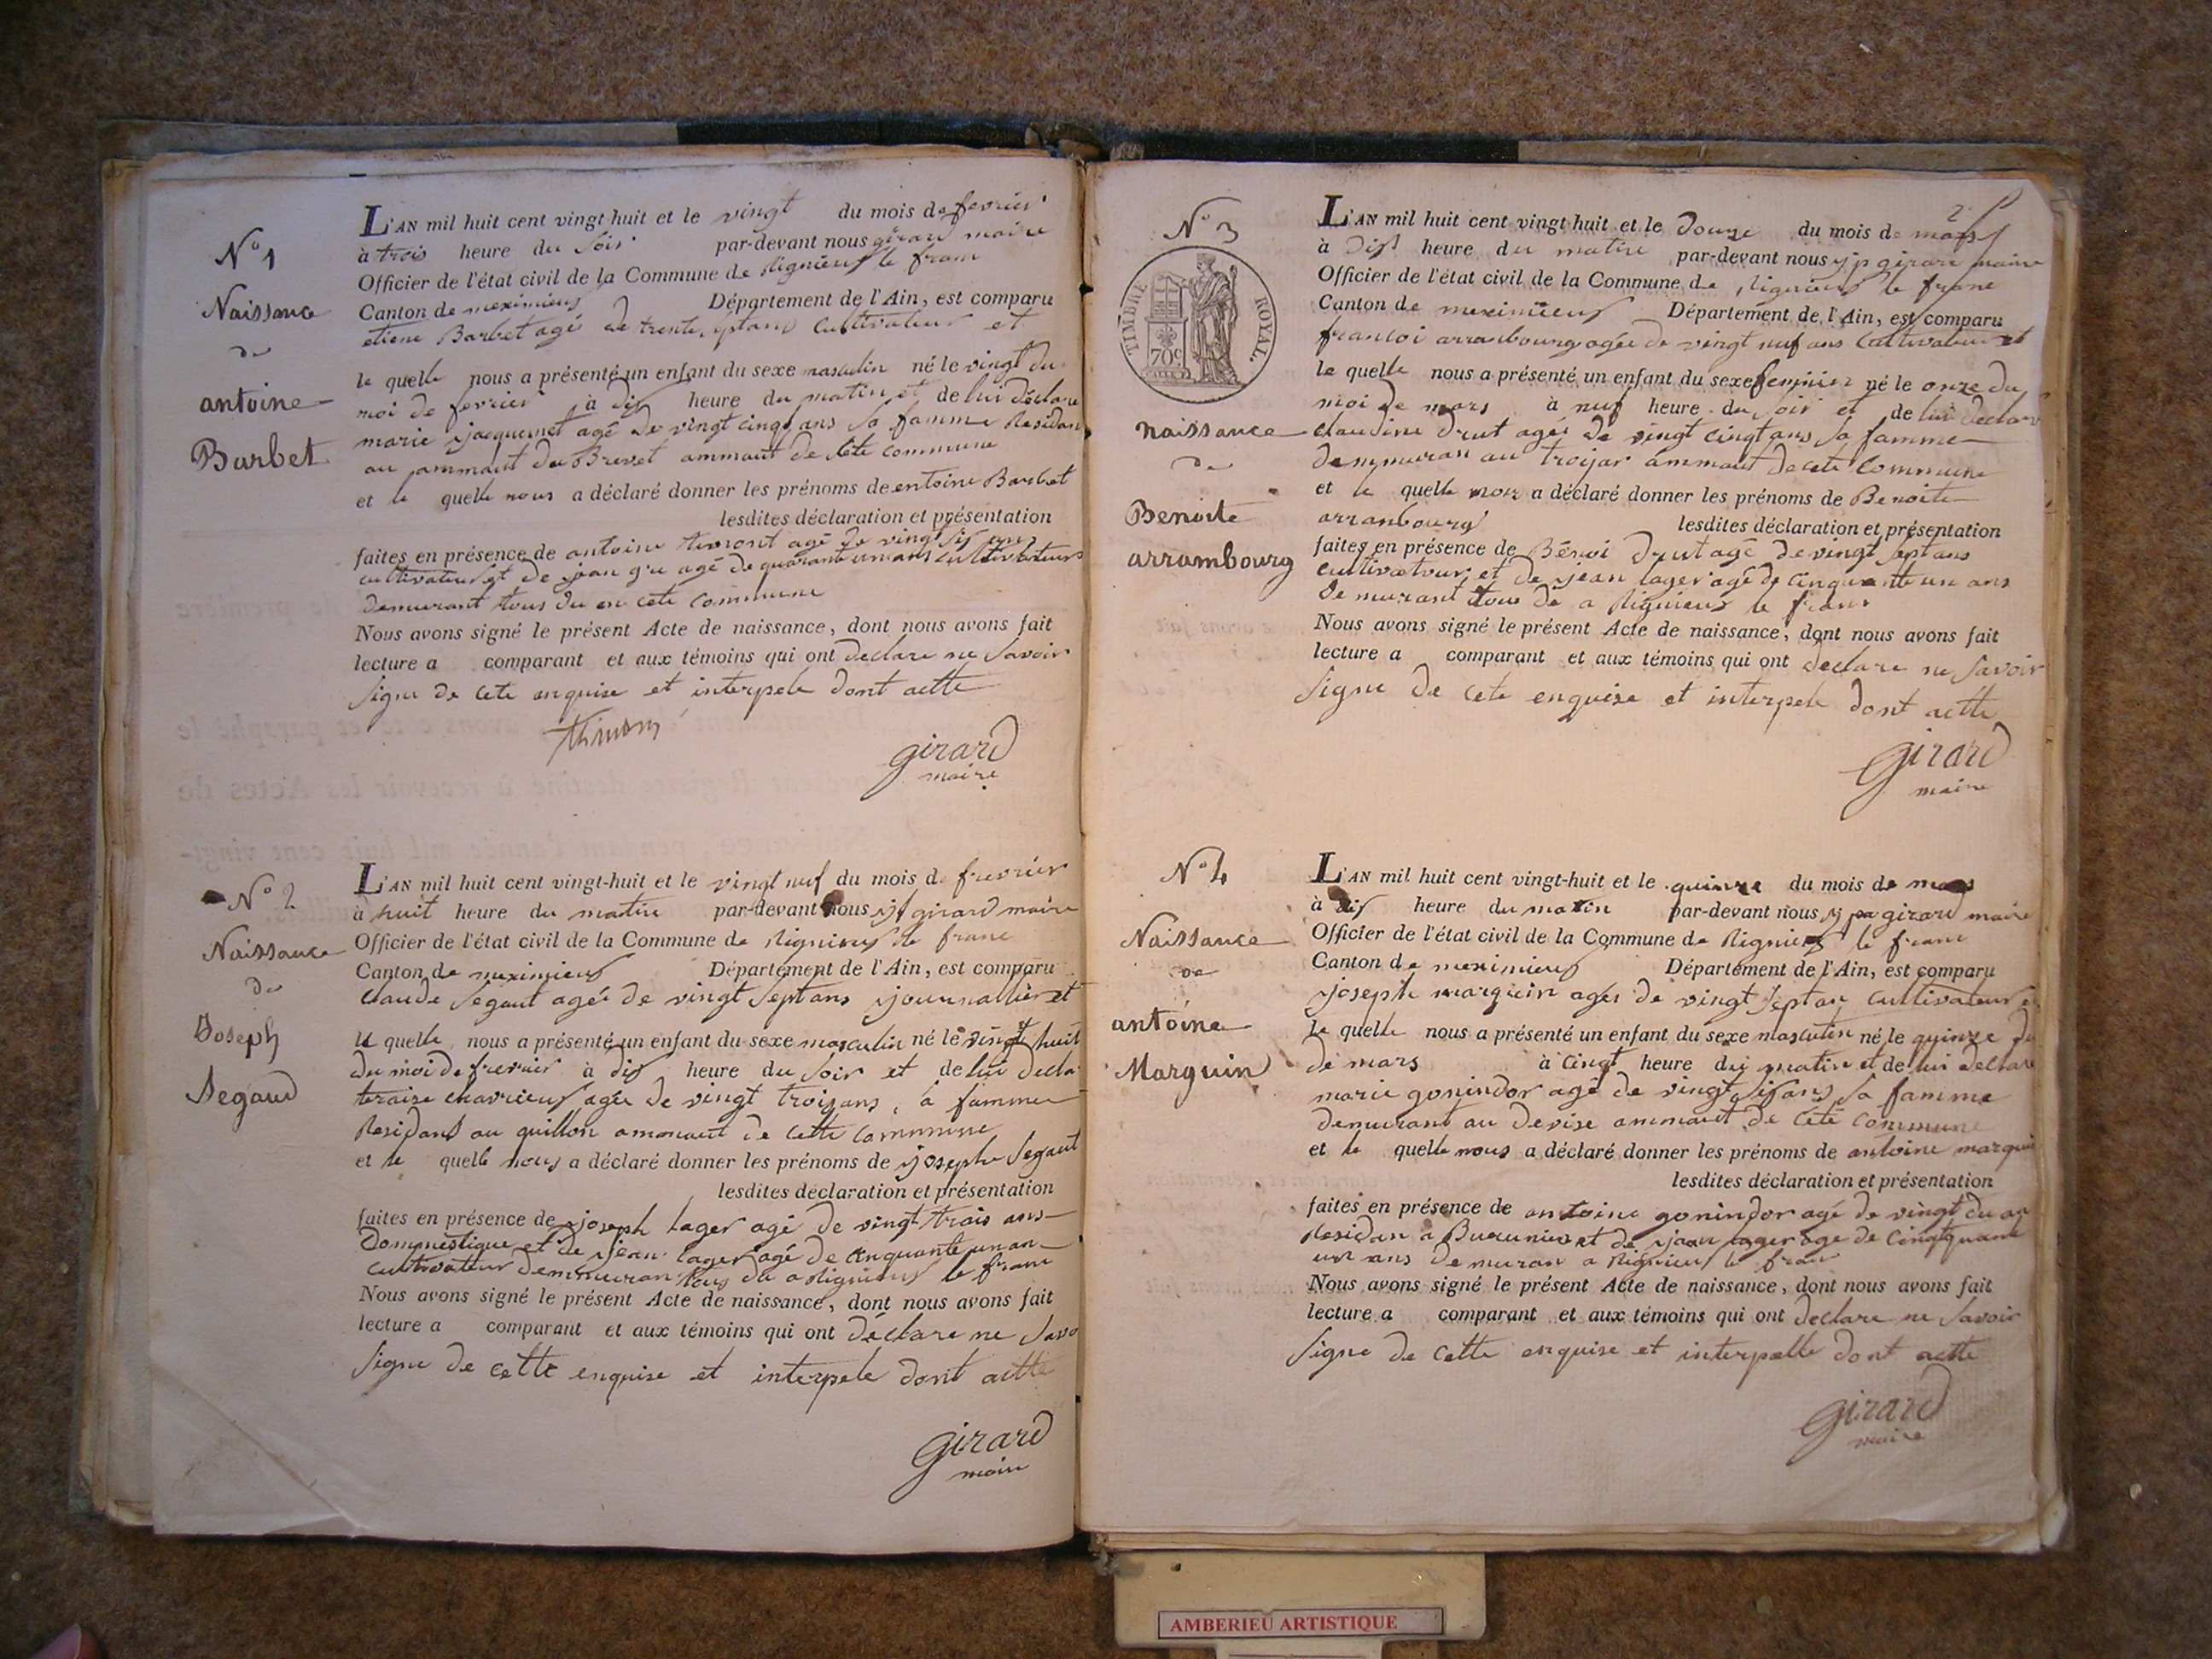 N° 1
Naissance
de
antoine
Barbet
L'AN mil huit cent vingt-huit et le vingt du mois de fevrier
à trois heure du soir par-devant nous girard maire
Officier de l'état civil de la Commune de Rignieux le franc
Canton de meximieux Département de l'Ain, est comparu
etiene Barbet agé de trente, septans Cultivateur et
le quelle nous a présenté un enfant du sexe masculin né le vingt du
moi de fevrier à dix heure du matin et de lui déclare
marie jacquemet agé de vingt cingt ans sa famme Residan
au ammaut du Brevet ammaut de Cete commune
et le quelle nous a déclaré donner les prénoms de entoine Barbet
lesdites déclaration et présentation
faites en présence de antoine agé de vingt six ans
cultivateur et de jean agé de quarante un ans cultivateurs
demurant tous du en cete commune
Nous avons signé le présent Acte de naissance, dont nous avons fait
lecture a comparant et aux témoins qui ont declare ne Savoir
Signe de Cete enquise et interpele dont actte
girard
maire
N° 2
Naissance
de
Joseph
Segaud
L'AN mil huit cent vingt-huit et le vingt neuf du mois de frevrier
à huit heure du matin par-devant nous girard maire
Officier de l'état civil de la Commune de Rignieux le franc
Canton de meximieux Département de l'Ain, est comparu
Claude Segaut agée de vingt Septans journallier et
le quelle nous a présenté un enfant du sexe masculin né le vingt huit
du moi de frevrier à dix heure du Soir et de lui decla
teraise chavrieux agée de vingt troizans, sa famme
Residans au guillon ammaut de cette commune
et le quelle nous a déclaré donner les prénoms de joseph Segaut
lesdites déclaration et présentation
faites en présence de joseph lager agé de vingt trois ans
Dommestique et de jean lager agé de cinquante un an
cultivateur demmuran tous du a Rignieux le franc
Nous avons signé le présent Acte de naissance, dont nous avons fait
lecture a comparant et aux témoins qui ont déclare ne Savo
Signe de cette enquise et interpele dont actte
girard
maire
2
N° 3
TIMBRE ROYAL.
70c
naissance
de
Benoite
arrambourg
L'AN mil huit cent vingt-huit et le douze du mois de mars
à dix heure du matin par-devant nous jp girard maire
Officier de l'état civil de la Commune de Rignieux le franc
Canton de meximieux Département de l'Ain, est comparu
francoi arranbourg agée de vingt neuf ans Cultivateur et
le quelle nous a présenté un enfant du sexe feminin né le onze du
moi de mars à neuf heure du Soir et de lui declare
claudine drut agée de vingt cingt ans Sa famme
demmuran au troijar ammaut de cete Commune
et le quelle nous a déclaré donner les prénoms de Benoite
arranbourg lesdites déclaration et présentation
faites en présence de Bénoi drut agé de vingt sept ans
cultivateur et de jean lager agé de cinquante un ans
demurant tous de a Rignieux le franc
Nous avons signé le présent Acte de naissance, dont nous avons fait
lecture a comparant et aux témoins qui ont declare ne Savoir
Signe de cete enquise et interpele dont actte
girard
maire
N° 4
Naissance
de
antoine
Marguin
L'AN mil huit cent vingt-huit et le quinze du mois de mars
à dix heure du matin par-devant nous girard maire
Officier de l'état civil de la Commune de Rignieux le franc
Canton de meximieux Département de l'Ain, est comparu
joseph marguin agée de vingt Septan Cultivateur
le quelle nous a présenté un enfant du sexe masculin né le quinze du
de mars à cingt heure du matin et de lui declare
marie gonindor agé de vingt sixans Sa famme
demurant au devise ammaut de Cete commune
et le quelle nous a déclaré donner les prénoms de antoine marguin
lesdites déclaration et présentation
faites en présence de antoine gonindor agé de vingt du an
Residan a et de jean lager age de cingtquante
un ans demuran a Rignieux le fran
Nous avons signé le présent Acte de naissance, dont nous avons fait
lecture a comparant et aux témoins qui ont declare ne Savoir
Signe de cette enquise et interpelle dont actte
girard
maire
AMBERIEU ARTISTIQUE